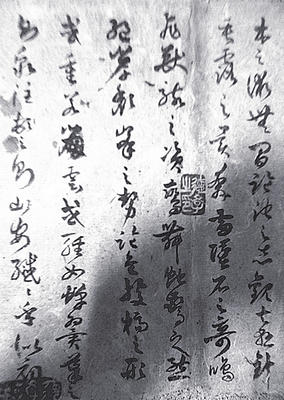 木之術無間臨池之志觀夫懸針
垂露之異奔雷墜石之奇鴻
飛獸駭之資鸞舞蛇驚之態
絕岸頹峯之勢臨危據槁之形
或重若崩雲或輕如蟬翼導之
則泉注頓之則山安纖纖乎似初